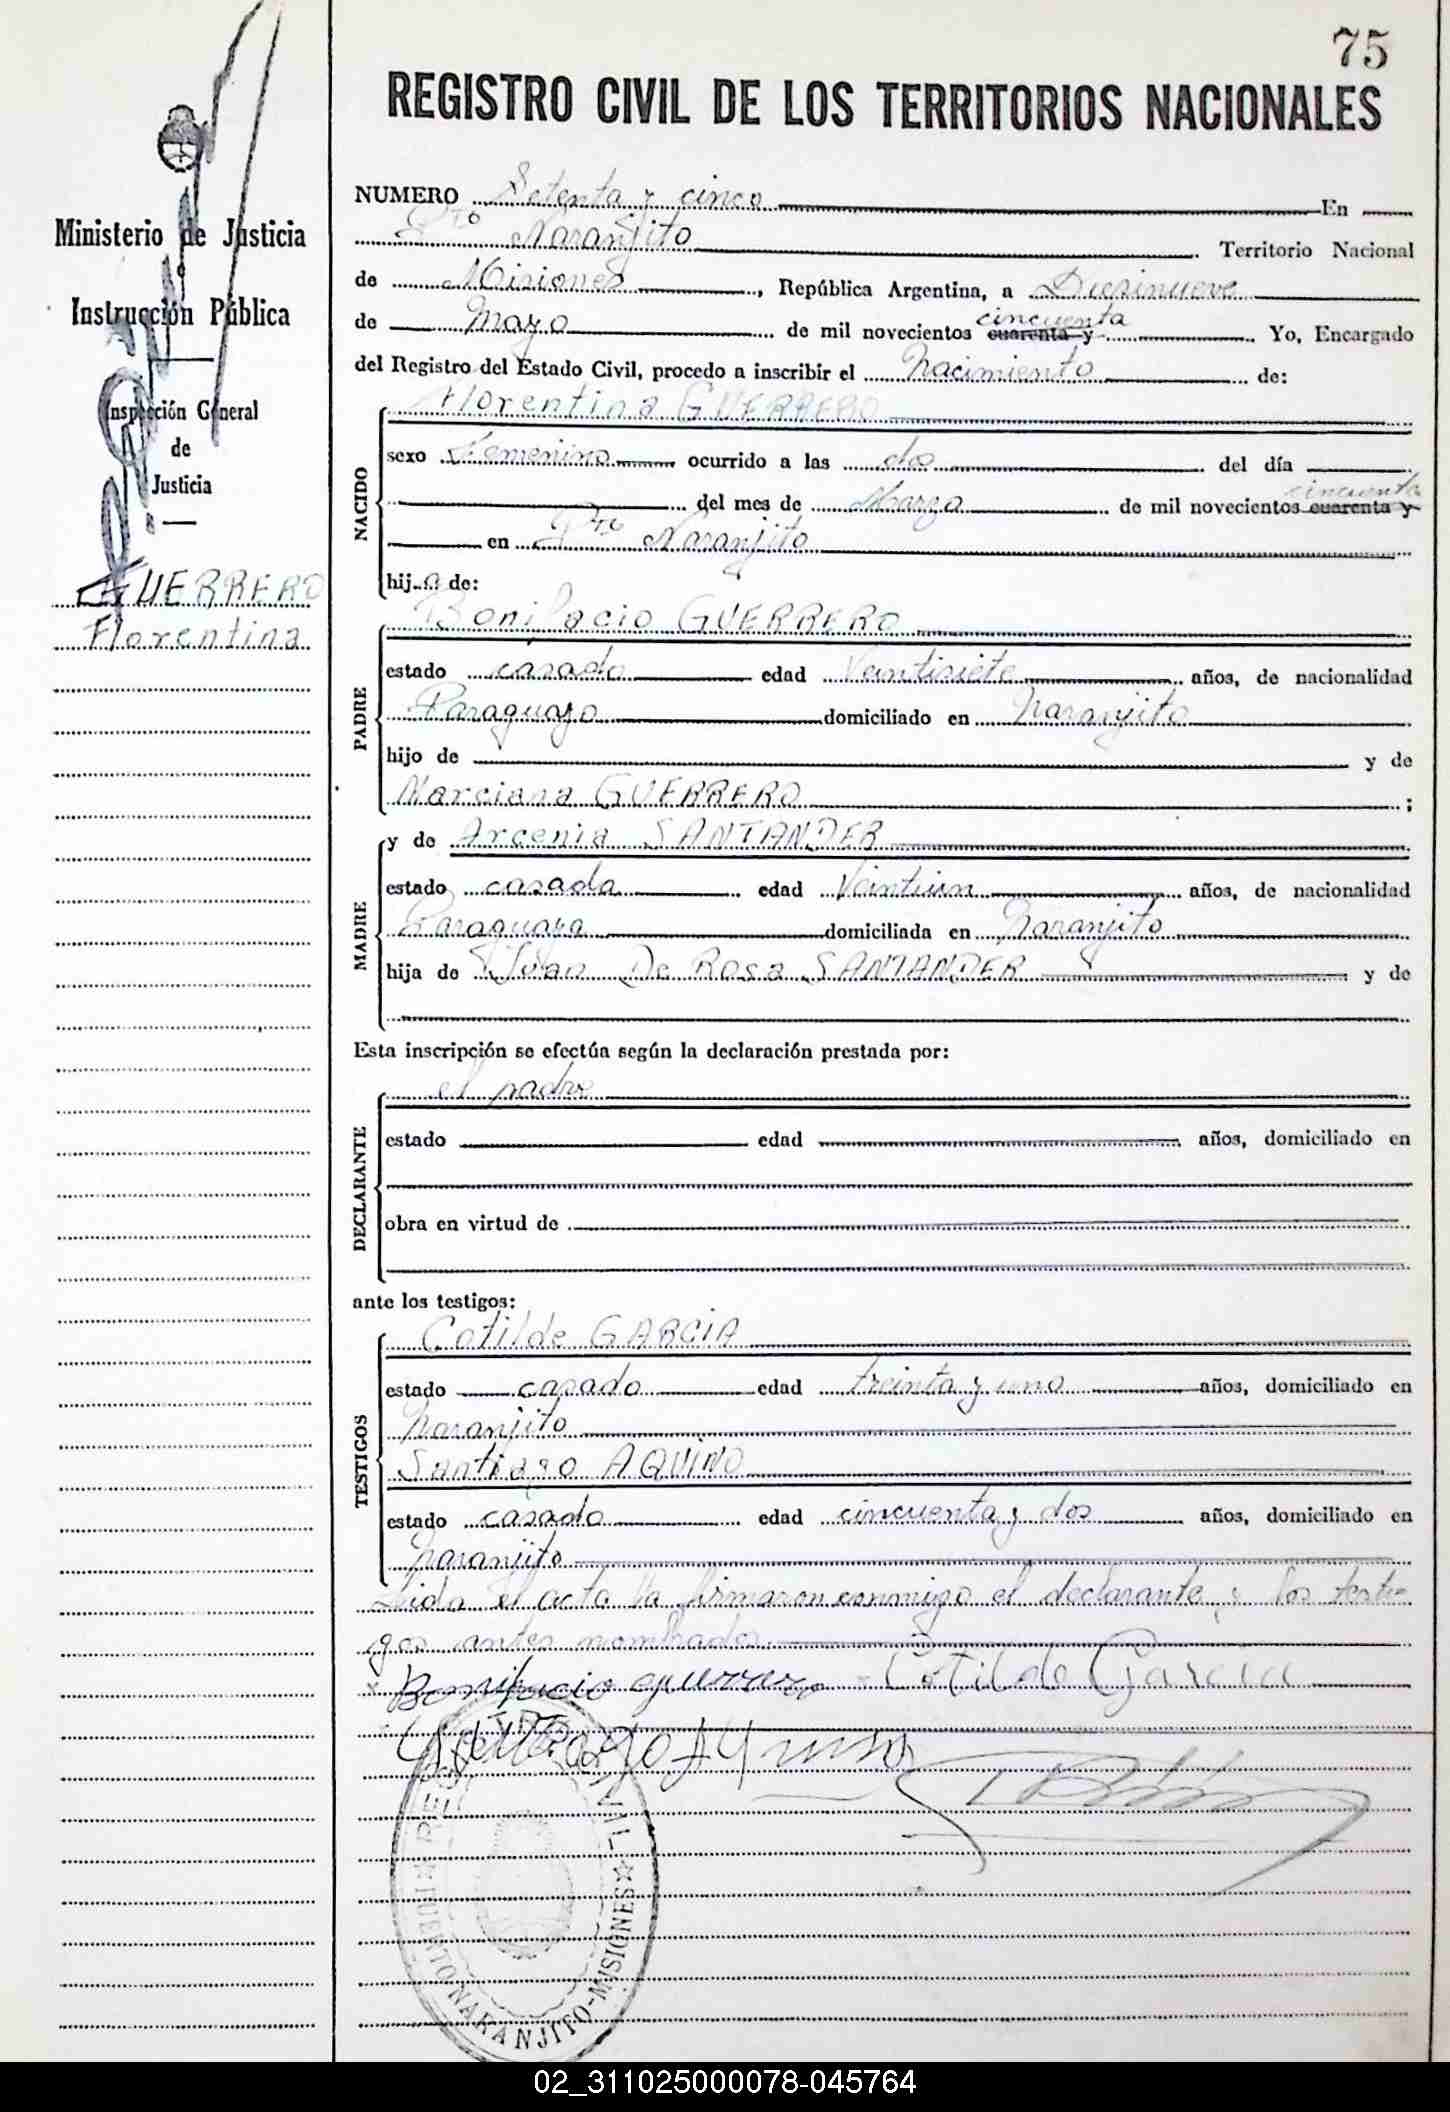 75
REGISTRO CIVIL DE LOS TERRITORIOS NACIONALES
Ministerio de Justicia
e
Instrucción Pública
Inspección General
de
Justicia
GUERRERO
Florentina
NUMERO Setenta y cinco En
Pto Naranjito Territorio Nacional
de Misiones, República Argentina, a Diesinueve
de Mayo de mil novecientos cuarenta y cincuenta Yo, Encargado
del Registro del Estado Civil, procedo a inscribir el nacimiento de:
NACIDO
Florentina GUERRERO
sexo Femenino ocurrido a las dos del día
del mes de Marzo de mil novecientos cuarenta y cincuenta
en Pto Naranjito
hija de:
PADRE
Bonifacio GUERRERO
estado casado edad Veintisiete años, de nacionalidad
Paraguayo domiciliado en Naranjito
hijo de y de
Marciana GUERRERO ;
MADRE
y de Arcenia SANTANDER
estado casada edad Veintiun años, de nacionalidad
Paraguaya domiciliada en Naranjito
hija de Juan De Rosa SANTANDER y de
Esta inscripción se efectúa según la declaración prestada por:
DECLARANTE
el padre
estado edad años, domiciliado en
obra en virtud de
ante los testigos:
TESTIGOS
Cotilde GARCIA
estado casado edad treinta y uno años, domiciliado en
Naranjito
Santiago AQUINO
estado casado edad cincuenta y dos años, domiciliado en
Naranjito
Leida el acta la firmaron conmigo el declarante y los testi
gos antes nombrados.
Bonifacio guerrero Cotilde Garcia
Santiago Aquino
PUERTO NARANJITO-MISIONES
02_311025000078-045764